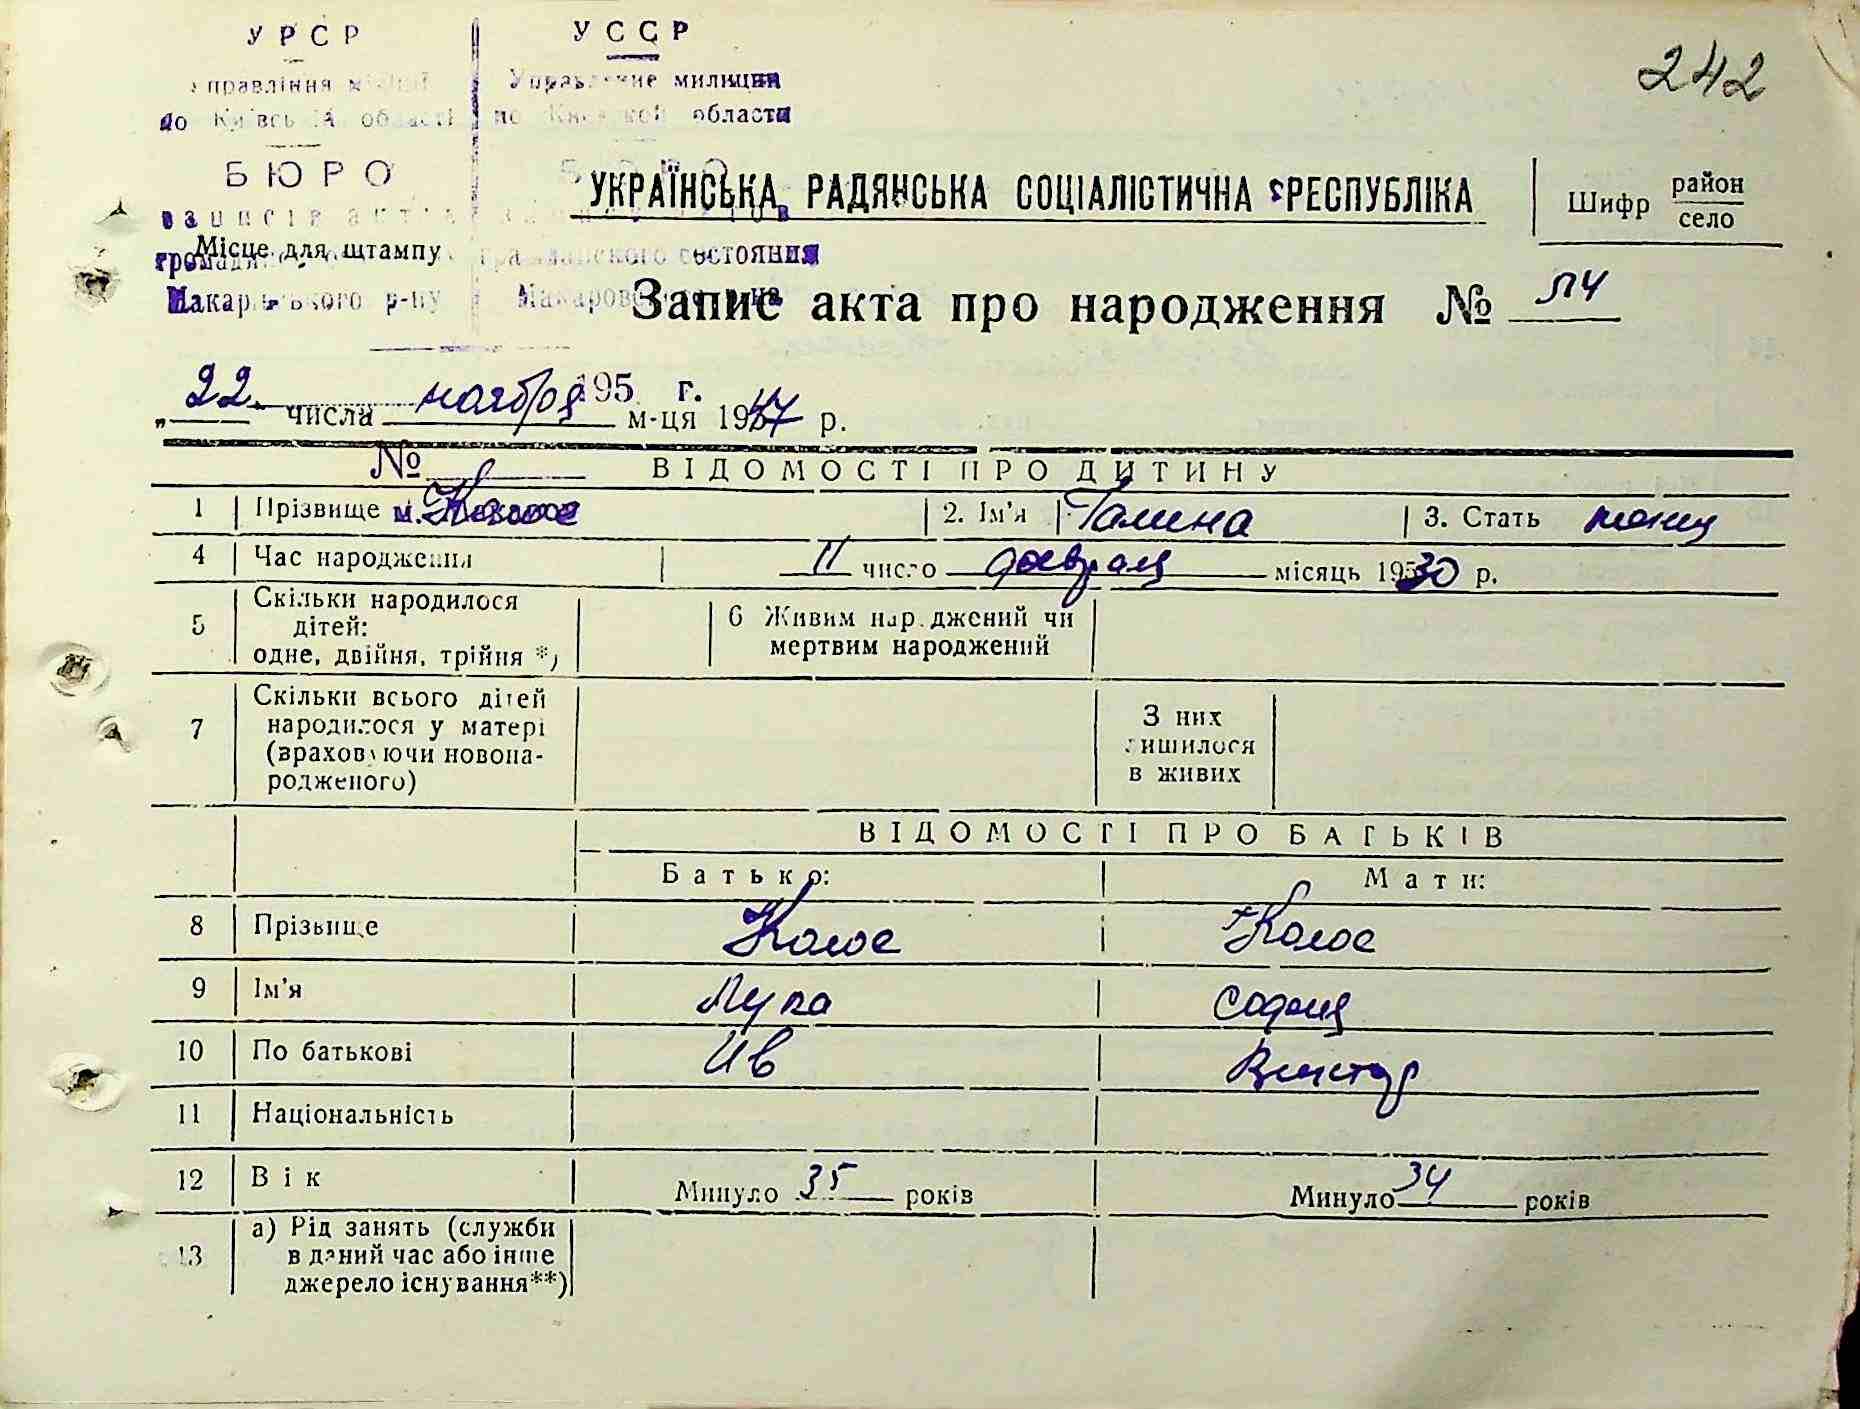 УРСР УССР
242
Управління міліції Управление милиции
по Київській області по Киевской области
БЮРО БЮРО
УКРАЇНСЬКА РАДЯНСЬКА СОЦІАЛІСТИЧНА РЕСПУБЛІКА
Шифр район
село
записів актів
Місце для штампу
гражданского состояния
Макарівського р-ну Макаровского р-на
Запис акта про народження №
195 г.
„22 числа ноября м-ця 1957 р.
№
ВІДОМОСТІ ПРО ДИТИНУ
1 Прізвище Колос 2. Ім'я Галина 3. Стать женщ
4 Час народження 11 число февраля місяць 1930 р.
5 Скільки народилося
дітей:
одне, двійня, трійня *)
6 Живим народжений чи
мертвим народжений
7 Скільки всього дітей
народилося у матері
(враховуючи новона-
родженого)
З них
лишилося
в живих
ВІДОМОСТІ ПРО БАТЬКІВ
Батько: Мати:
8 Прізвище Колос Колос
9 Ім'я Лука София
10 По батькові Ив Виктор
11 Національність
12 Вік Минуло 35 років Минуло 34 років
13 а) Рід занять (служби
в даний час або інше
джерело існування**)